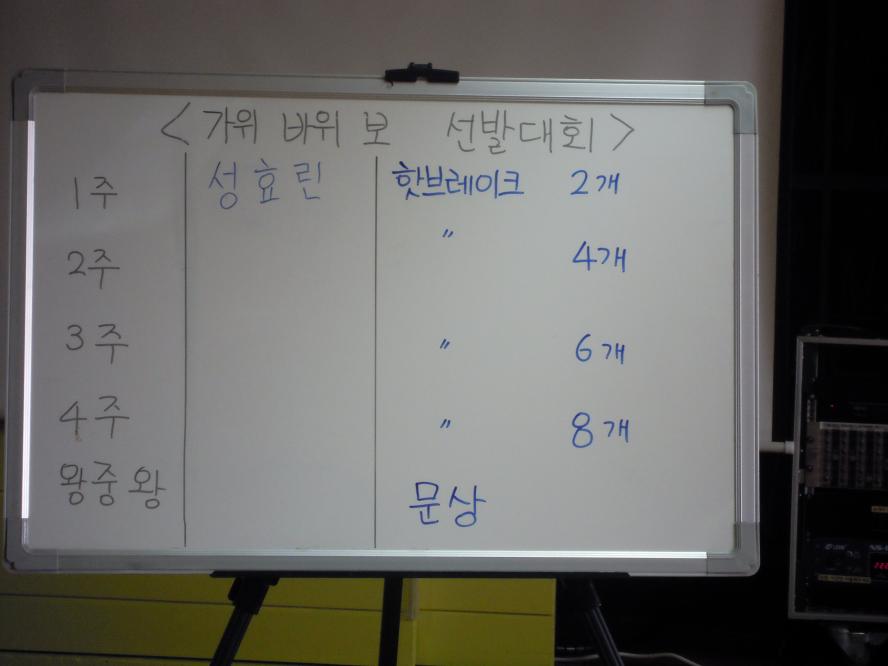 < 가위 바위 보 선발대회 >
1주 성효린 핫브레이크 2개
2주 〃 4개
3주 〃 6개
4주 〃 8개
왕중왕 문상